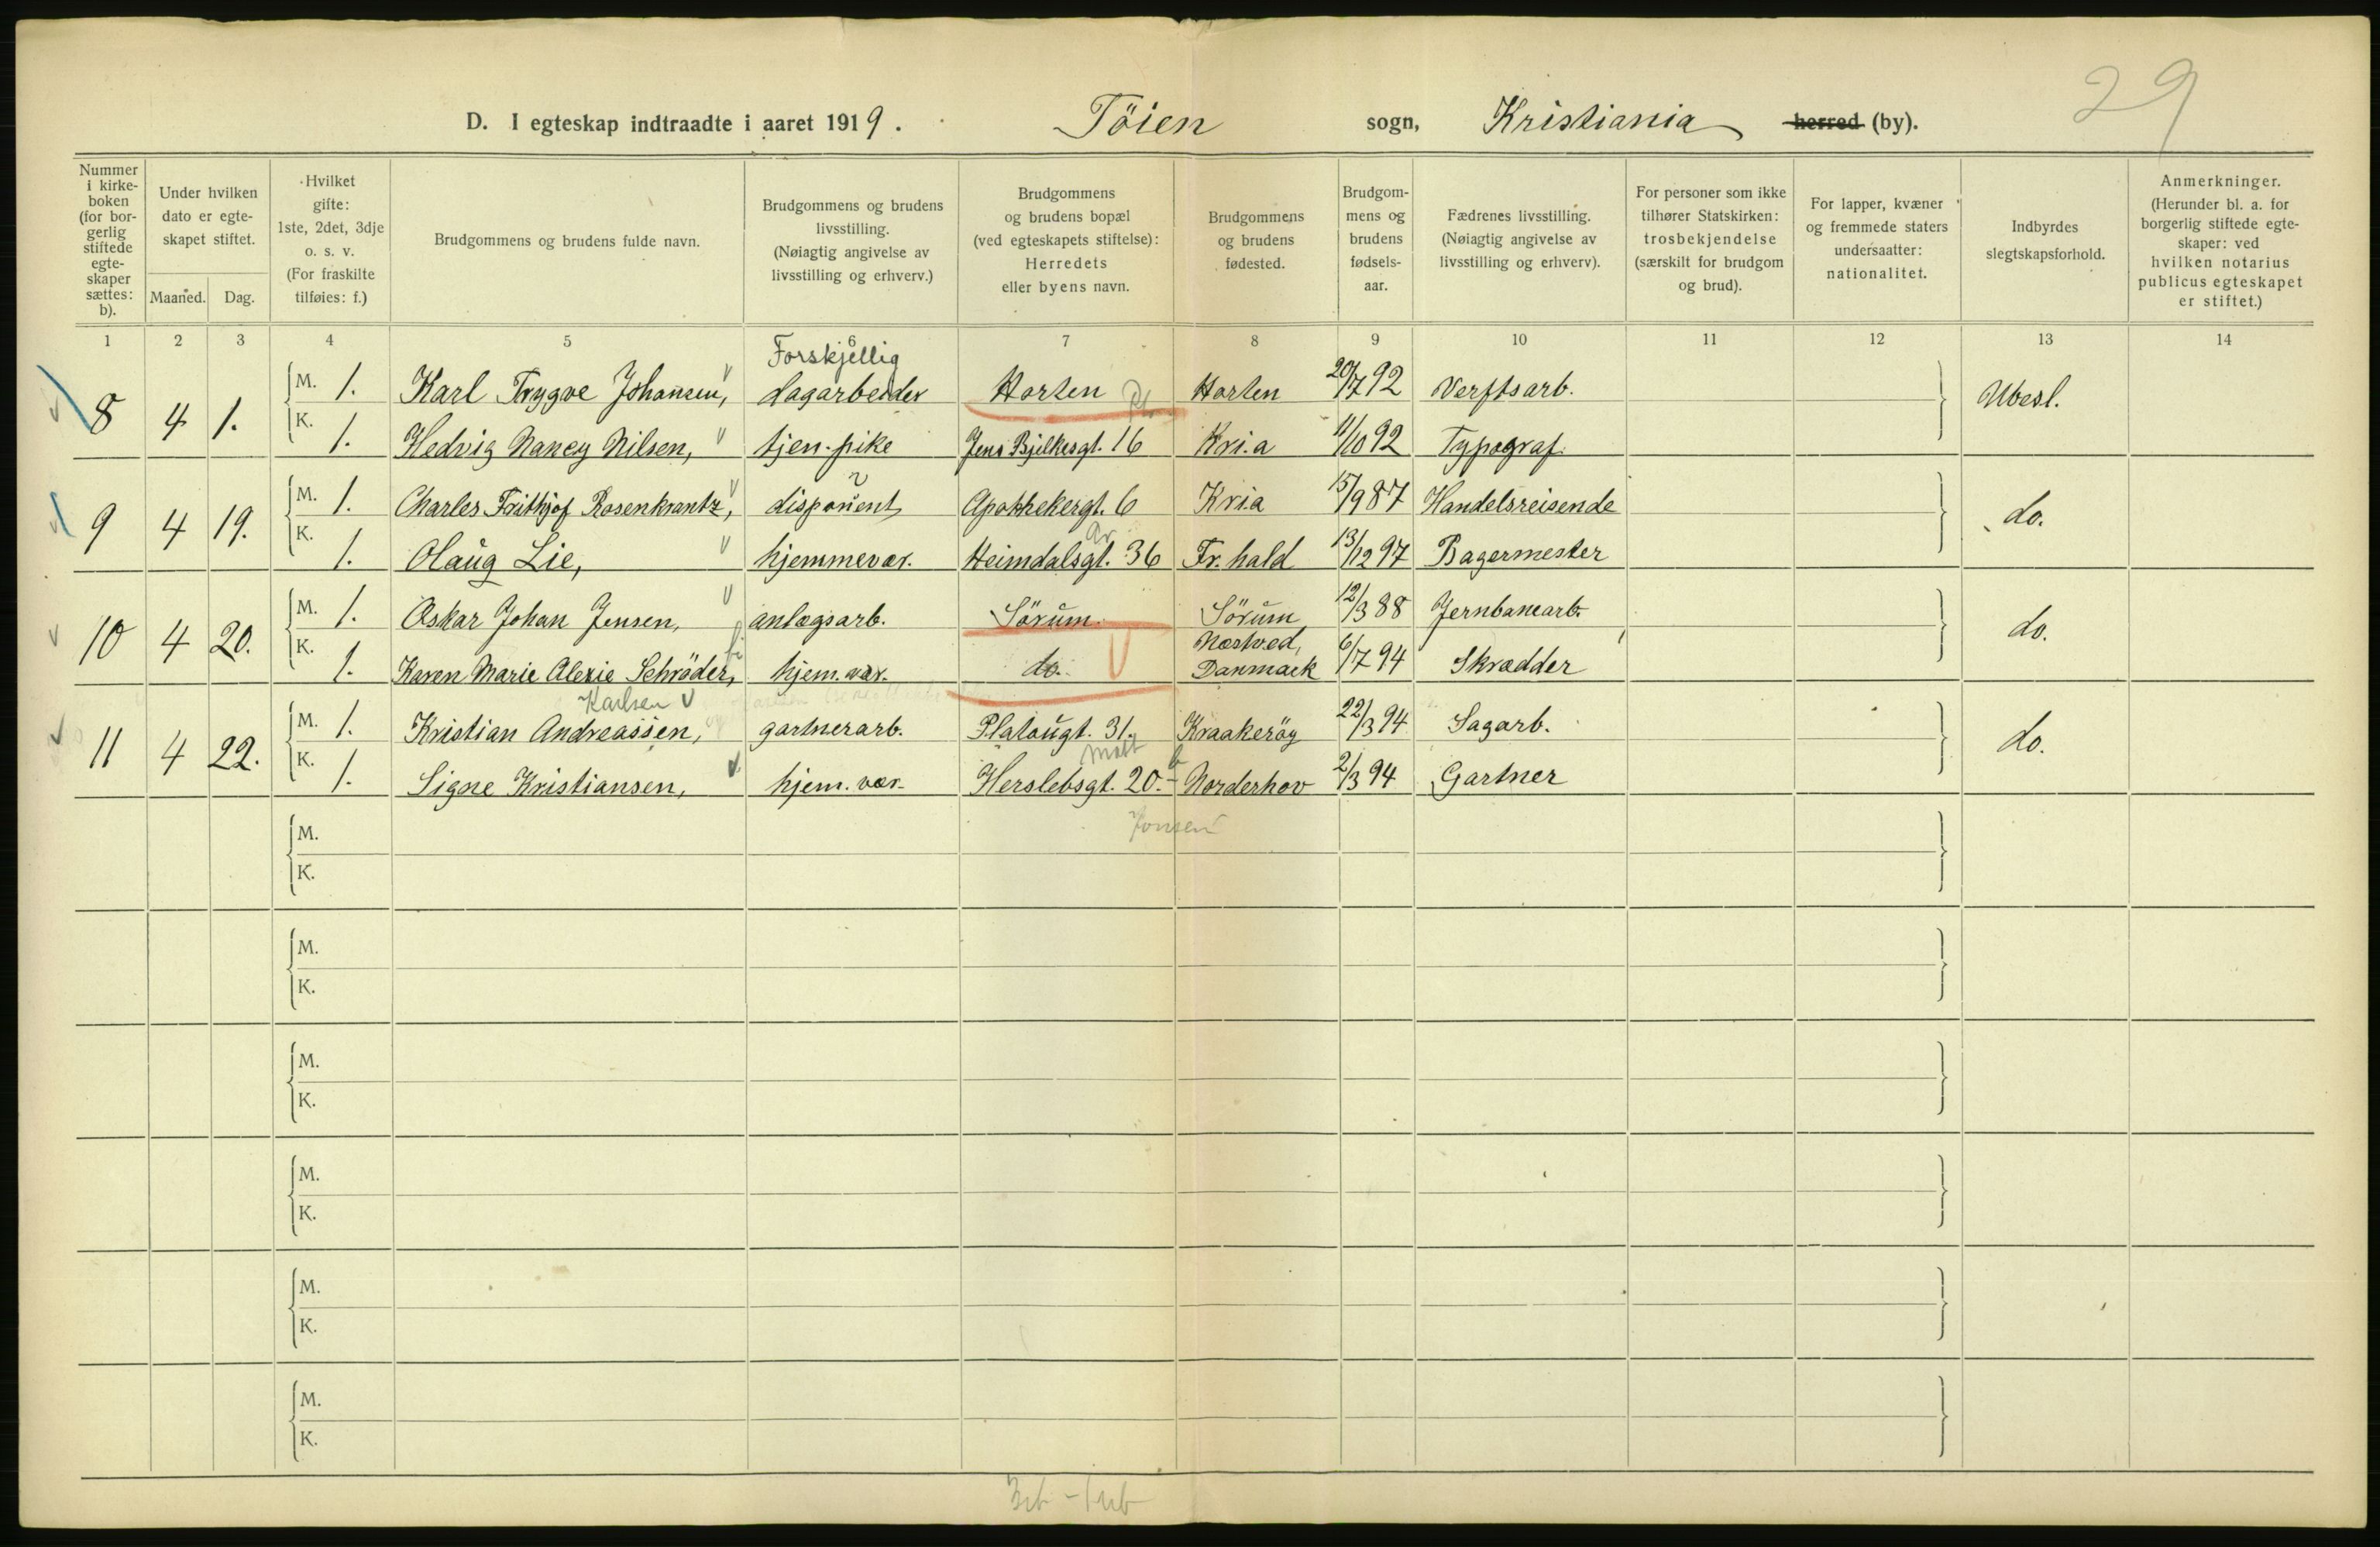 29
D. I egteskap indtraadte i aaret 1919. Töien sogn, Kristiania herred (by).
Nummer i kirke-boken (for bor-gerlig stiftede egte-skaper sættes: b).
Under hvilken dato er egte-skapet stiftet.
Maaned. Dag.
Hvilket gifte: 1ste, 2det, 3dje o. s. v. (For fraskilte tilføies: f.)
Brudgommens og brudens fulde navn.
Brudgommens og brudens livsstilling. (Nøiagtig angivelse av livsstilling og erhverv.)
Brudgommens og brudens bopæl (ved egteskapets stiftelse): Herredets eller byens navn.
Brudgommens og brudens fødested.
Brudgom-mens og brudens fødsels-aar.
Fædrenes livsstilling. (Nøiagtig angivelse av livsstilling og erhverv).
For personer som ikke tilhører Statskirken: trosbekjendelse (særskilt for brudgom og brud).
For lapper, kvæner og fremmede staters undersaatter: nationalitet.
Indbyrdes slegtskapsforhold.
Anmerkninger. (Herunder bl. a. for borgerlig stiftede egte-skaper: ved hvilken notarius publicus egteskapet er stiftet.)
1 2 3 4 5 6 7 8 9 10 11 12 13 14
Forskjellig
8 4 1. M. 1. Karl Trygve Johansen, dagarbeider Horten Horten 20/7 92 Verftsarb. Ubesl.
K. 1. Hedvig Nancy Nilsen, tjen.-pike Jens Bjelkesgt. 16 Kri.a 11/10 92 Typograf.
9 4 19. M. 1. Charles Frithjof Rosenkrantz, disponent Apothekergt. 6 Kria 15/9 87 Handelsreisende do.
K. 1. Olaug Lie, hjemmevær. Heimdalsgt. 36 Fr.hald 13/12 97 Bagermester
10 4 20. M. 1. Oskar Johan Jensen, anlægsarb. Sörum. Sörum 12/3 88 Jernbanearb. do.
K. 1. Karen Marie Alexie Schröder, hjem.vær. do. Næstved, Danmark 6/7 94 Skrædder
Karlsen
11 4 22. M. 1. Kristian Andreassen, gartnerarb. Platougt. 31. Kraakeröy 22/3 94 Sagarb. do.
K. 1. Signe Kristiansen, hjem.vær. Herslebsgt. 20.b Norderhov 2/3 94 Gartner
Jonsen
M.
K.
M.
K.
M.
K.
M.
K.
M.
K.
M.
K.